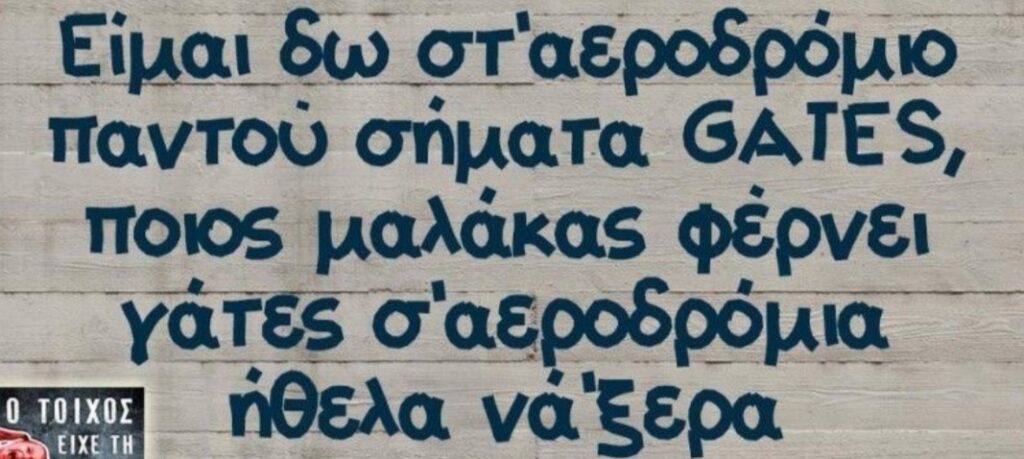 Είμαι δω στ'αεροδρόμιο
παντού σήματα GATES,
ποιος μαλάκας φέρνει
γάτες σ'αεροδρόμια
ήθελα νά'ξερα
Ο ΤΟΙΧΟΣ
ΕΙΧΕ ΤΗ